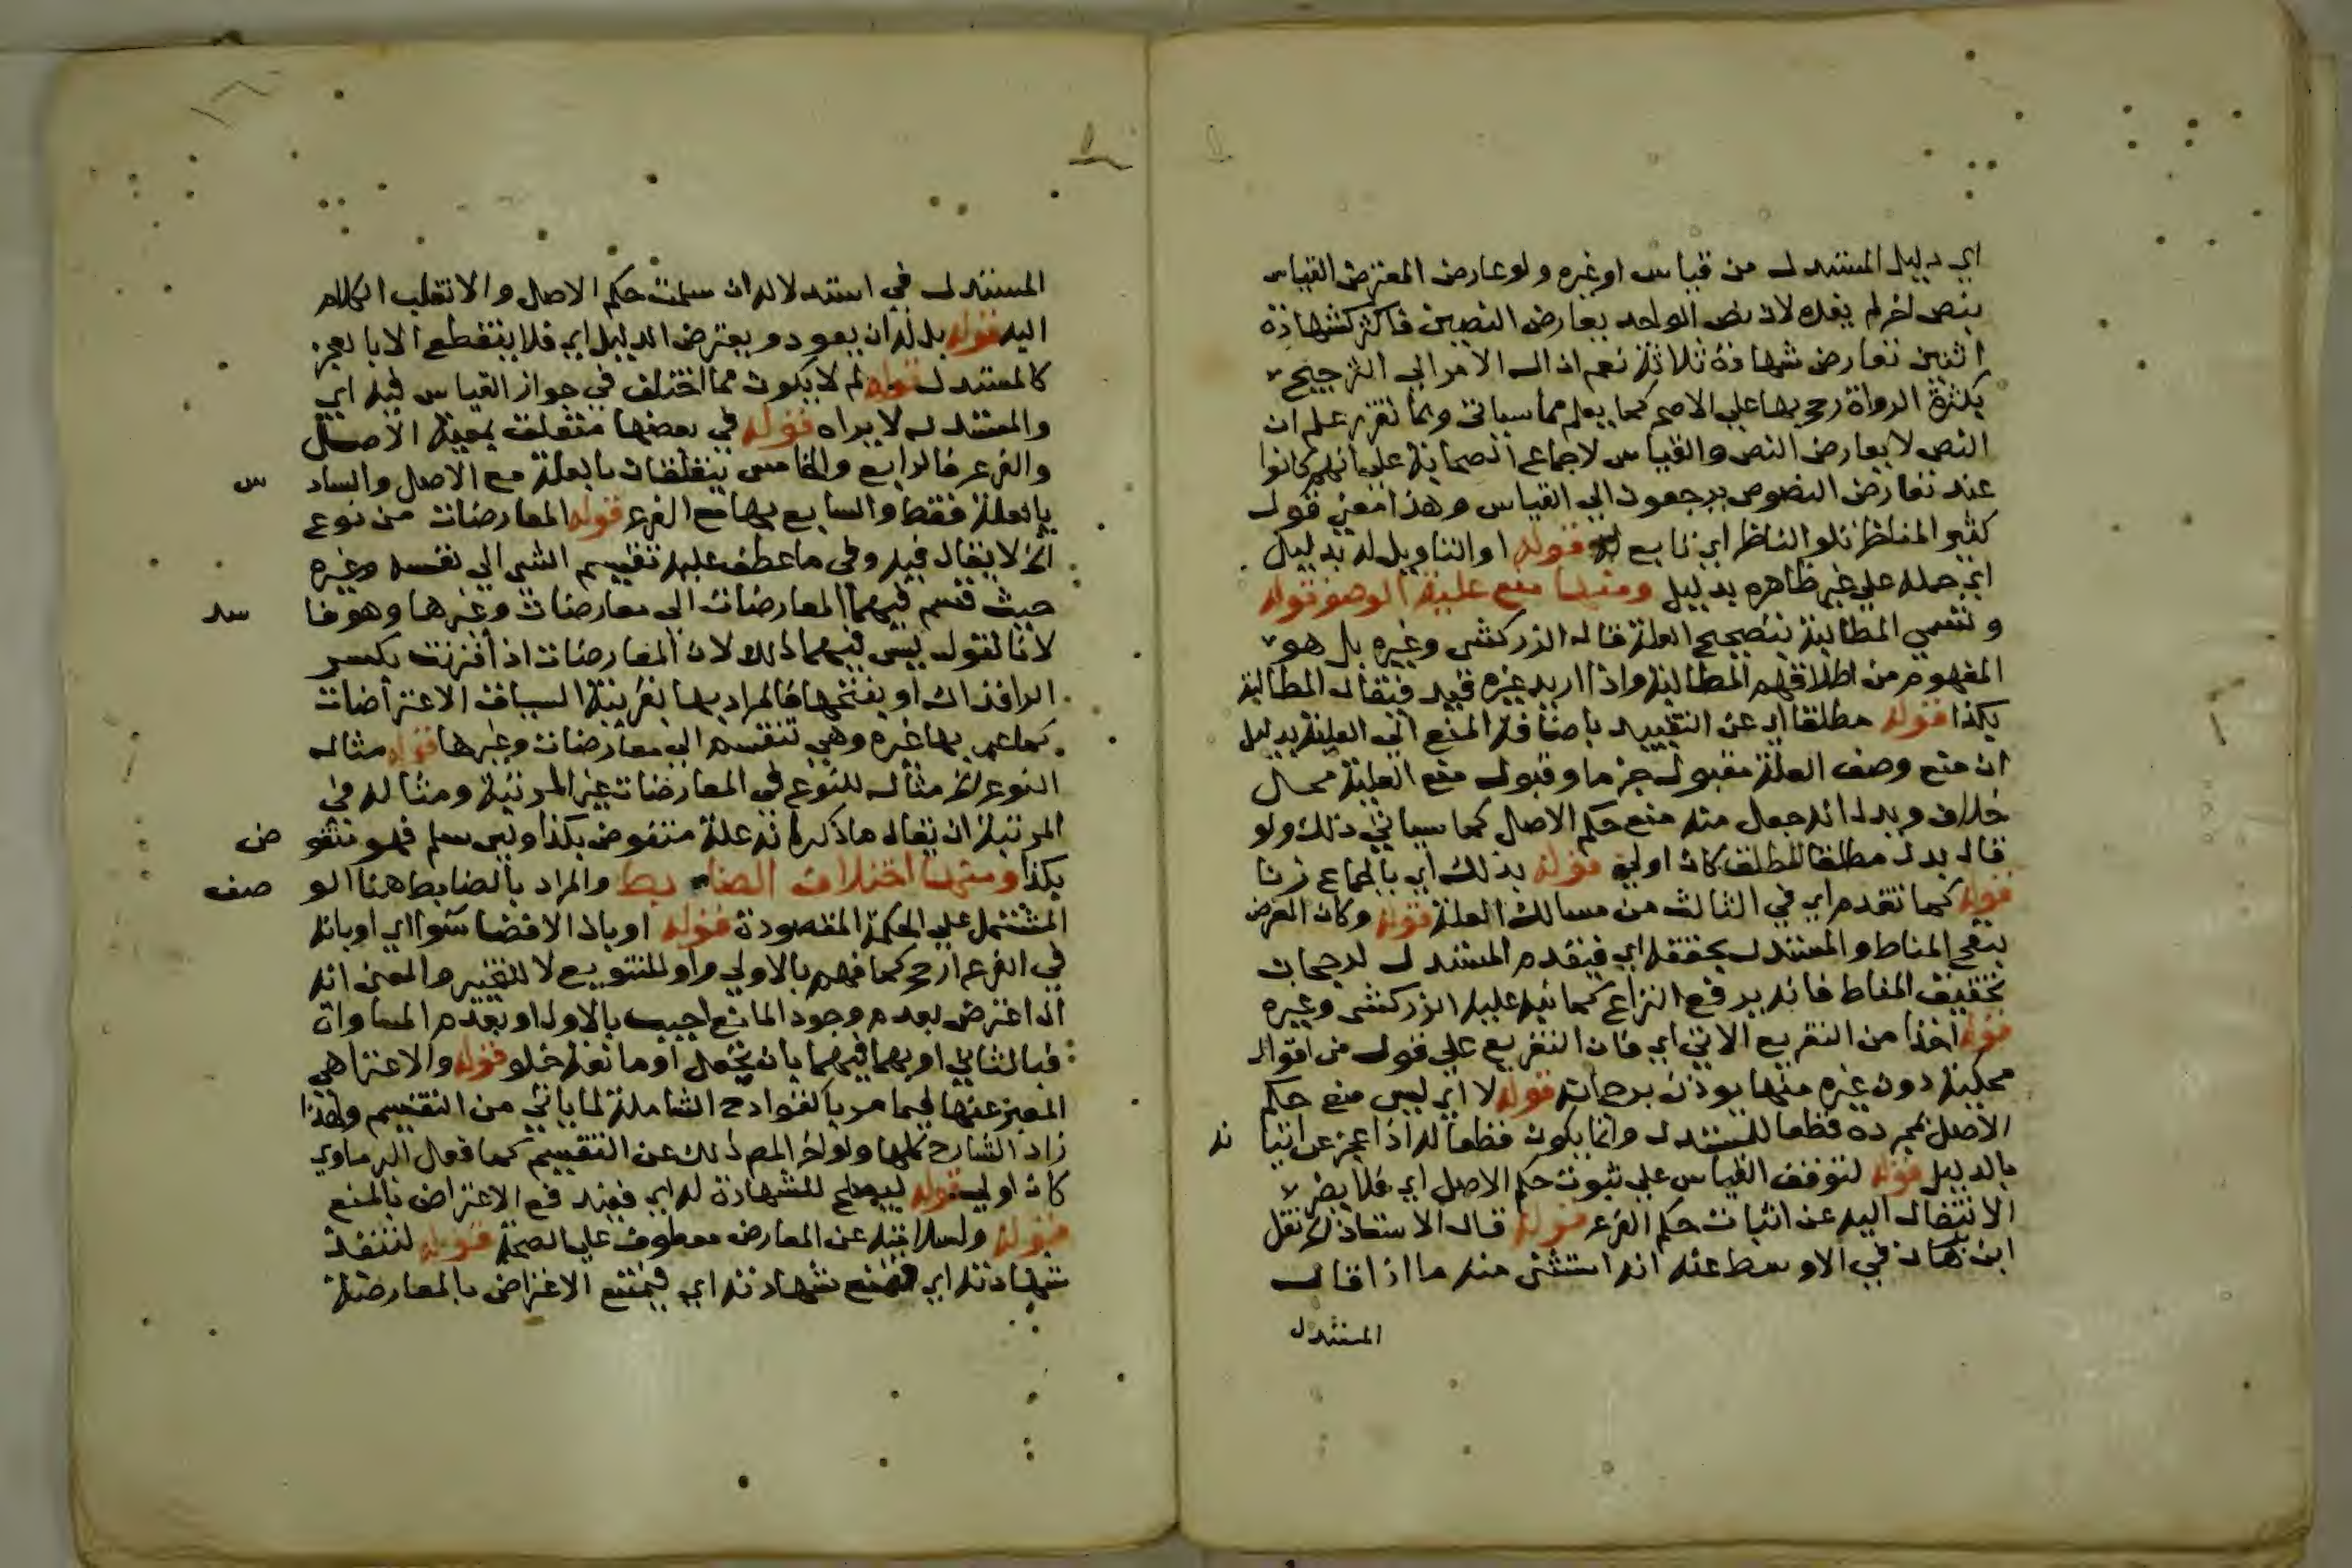 اي دليل المستدل من قياس او غيره ولو عارض المعترض القياس
بنص اخر لم يفده لان نص الواحد يعارض النصين فاكثر كشهادة
اثنين تعارض شهادة ثلاثة نعم ان ال الامر الي الترجيح
بكثرة الرواة رجح بها علي الاصح كما يعلم مما سياتي وبما تقرر علم ان
النص لا يعارض النص والقياس لاجماع الصحابة علي انهم كانوا
عند تعارض النصوص يرجعون الي القياس وهذا معني قول
كثير المناظر تلو الناظر اي تابع له قوله او التاويل له بدليل
اي حمله علي غير ظاهره بدليل ومنها منع علية الوصف قوله
وتسمي المطالبة بتصحيح العلة قال الزركشي وغيره بل هو
المفهوم من اطلاقهم المطالبة واذا اريد غيره قيد فيقال المطالبة
بكذا قوله مطلقا اي عن التقييد باضافة المنع الي العلية بدليل
ان منع وصف العلة مقبول جزما وقبول منع العلية محل
خلاف وبدل انه جعل منه منع حكم الاصل كما سياتي ذلك ولو
قال بدل مطلقا المطلق كان اولي قوله بذلك اي بالجماع زنا
قوله كما تقدم اي في الثالث من مسالك العلة قوله وكان المعترض
ينقح المناط والمستدل يحققه اي فيقدم المستدل لرجحان
تحقيق المناط فانه يرفع النزاع كما نبه عليه الزركشي وغيره
قوله اخذا من التفريع الاتي اي فان التفريع علي قول من اقوال
محكية دون غيره منها يوذن برجحانه قوله لا اي ليس منع حكم
الاصل بمجرده قطعا للمستدل وانما يكون قطعا له اذا عجز عن اثباته
بالدليل قوله لتوقف القياس علي ثبوت حكم الاصل اي فلا يضر
الانتقال اليه عن اثبات حكم الفرع قوله قال الاستاذ الخ نقل
ابن برهان في الاوسط عنه انه استثني منه ما اذا قال
المستدل
المستدل في استدلاله ان سلمت حكم الاصل والا نقلت الكلام
اليه قوله بل له ان يعود ويعترض الدليل اي فلا ينقطع الا بالعجز
كالمستدل قوله لم لا يكون مما اختلف في جواز القياس فيه اي
والمستدل لا يراه قوله في بعضها متعلق بمعية الاصل
والفرع فالرابع والخامس يتعلقان بالعلة مع الاصل والسادس
بالعلة فقط والسابع بها مع الفرع قوله المعارضات من نوع
الخ لا يقال فيه وفي ما عطف عليه تقسيم الشي الي نفسه وغيره
حيث قسم فيهما المعارضات الي معارضات وغيرها وهو فاسد
لانا نقول ليس فيهما ذلك لان المعارضات اذ اقترنت بكسر
الرا فذاك او بفتحها فالمراد بها بقرينة السياق الاعتراضات
كما عبر بها غيره وهي تنقسم الي معارضات وغيرها قوله مثال
النوع الخ مثال للنوع في المعارضات غير المرتبة ومثاله في
المرتبة ان يقال ما ذكر انه علة منقوض بكذا ولين سلم فهو منقوض
بكذا ومنها اختلاف الضابط والمراد بالضابط هنا الوصف
المشتمل علي الحكمة المقصودة قوله او بان الافضا سوا اي او بانه
في الفرع ارجح كما فهم بالاولي واو للتنويع لا للتخيير والمعني انه
ان اعترض بعدم وجود المانع اجيب بالاول او بعدم المساواة
فبالثاني او بهما فبهما بان تجعل او مانعة خلو قوله والاعتراهي
المعبر عنها فيما مر بالقوادح الشاملة لما ياتي من التقسيم ولهذا
زاد الشارح كلها ولو اخر المص ذلك عن التقسيم كما فعل البرماوي
كان اولي قوله ليصلح للشهادة له اي فيند فع الاعتراض بالمنع
قوله ولسلامته عن المعارض معطوف علي لصحة قوله لتنفذ
شهادته اي شهادته اي فيمتنع الاعتراض بالمعارضة